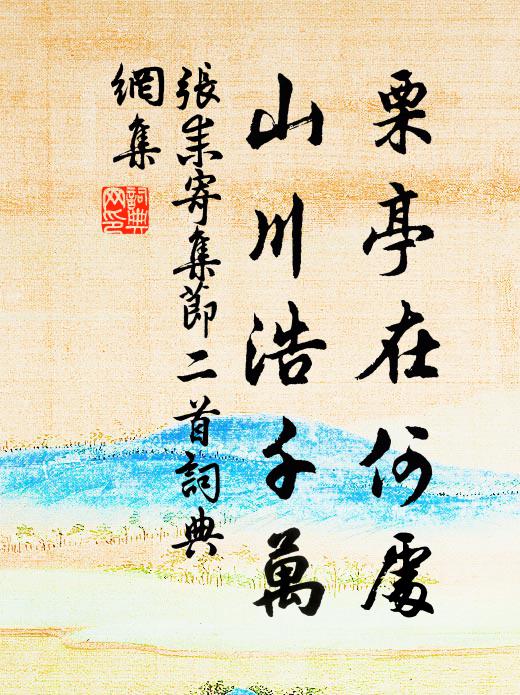 栗亭在何處
山川浩千萬
張耒寄集節二首詞典
網集
詞典網印